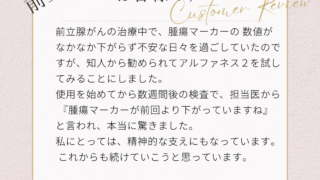 Customer Review
前立腺がんの治療中で、腫瘍マーカーの 数値が
なかなか下がらず不安な日々を過ごしていたので
すが、知人から勧められてアルファネス2を試し
てみることにしました。
使用を始めてから数週間後の検査で、担当医から
『腫瘍マーカーが前回より下がっていますね』
と言われ、本当に驚きました。
私にとっては、精神的な支えにもなっています。
これからも続けていこうと思っています。